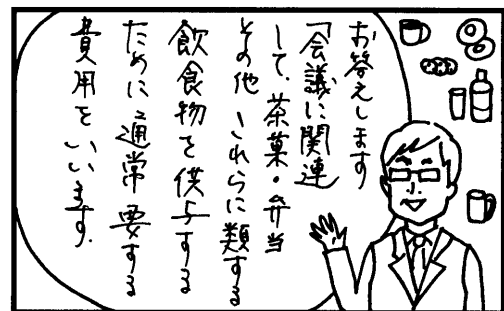 お答えします
「会議に関連
して、茶菓・弁当
その他 これらに類する
飲食物を供与する
ために 通常要する
費用をいいます.